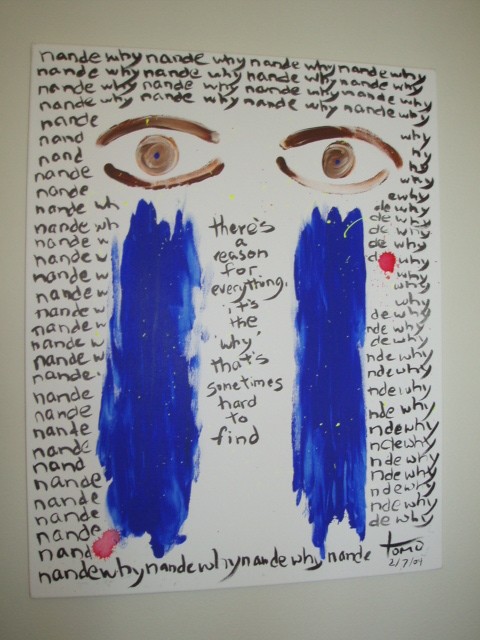 nande why nande why nande why nande why
nande why nande why nande why nande why
nande why nande why nande why nande why
nande why nande why nande why nande why
nande
nand why
nand why
nande why
nande ewhy
nande wh de why
nande wh de why
nande w de why
nande w de why
nande w why
nande w why
nande w why
nande w de why
nande w nde why
nande w de why
nande w nde why
nande nde why
nande nde why
nande nde why
nande nde why
nande nde why
nand nde why
nande nde why
nande nde why
nande nde why
nande de why
nand
nande why nande why nande why nande
there's
a
reason
for
everything.
it's
the
'why'
that's
sometimes
hard
to
find
tomo
2/7/01